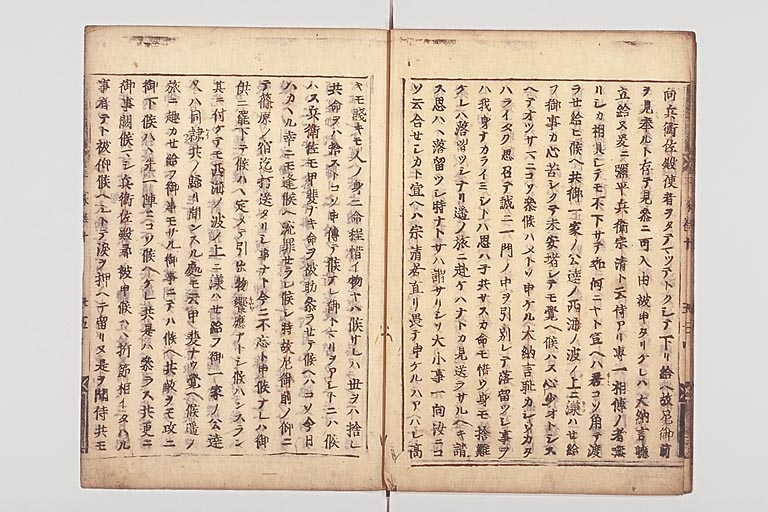 向兵衛佐殿使者ヲタテマツテトクシテ下リ給ヘ故尼御前
ヲ見奉ルト存テ見参ニ可入由被申タリケレハ大納言軈
立給ヌ爰ニ彌平兵衛宗清ト云侍アリ専一相傳ノ者
リシカ相具シテモ不下サテ如何ニヤト宣ヘハ君コソ角テ渡
ラせ給ヒ候ヘ共御一家ノ公達ノ西海ノ波ノ上ニ漾ハせ給
フ御事カ心苦シクテ未安堵シテモ覺ヘ候ハス心少オトシス
ヘテオツサマニコソ参候ハメトソ申ケル大納言耻カシクカタ
ハライタク思召テ誠ニ一門ノ中ヲ引別レテ落留ツシ事ヲ
ハ我身ナカライミシトハ思ハ子共サスカ命モ惜ツ身モ捨難
ケレハ落留ツシテリ遥ノ旅ニ赴ケハナトカ見送ラサルヘキ請
ス思ハヽ落留ツシ時ナトサハ謂サリシソ大小事一向汝ニコ
ソ云合せシカト宣ヘハ宗清居直リ畏テ申ケルハアハレ高
キモ賤キモ人ノ身ニ命程惜イ物ヤハ候サレハ世ヲハ捨レ
共命ヲハ捨ストコソ申傳テ候ナレ御トヽマリヲアシトニハ候
ハス兵衛佐モ甲斐ナキ命ヲ被助参ラせテ候ヘハコソ今日
ハカヽル幸ニモ逢候ヘ流罪せラレ候シ時故尼御前ノ仰ニ
テ篠原ノ宿迄打送タリシ事ナト今ニ不忘ト申候ナレハ御
供ニ罷下テ候ハヽ定メテ引出物饗應ナトシ候ハンスラン
其ニ付ケテモ西海ノ波ノ上ニ漾ハせ給フ御一家ノ公達
又ハ同隷共ノ歸リ聞ンスル處モ云甲斐ナウ覺ヘ候遥ヲ
旅ニ趣カせ給フ御事モサル御事ニテハ候ヘ共敵ヲモ攻ニ
御下候ハヽ先一陣ニコソ候ヘケレ共是ハ参ラス共更ニ
御事闕候マシ兵衛佐殿尋被申候ハヽ折節相イタハル
事有テト被仰候ヘシトテ涙ヲ押ヘテ留リヌ是ヲ聞侍共モ